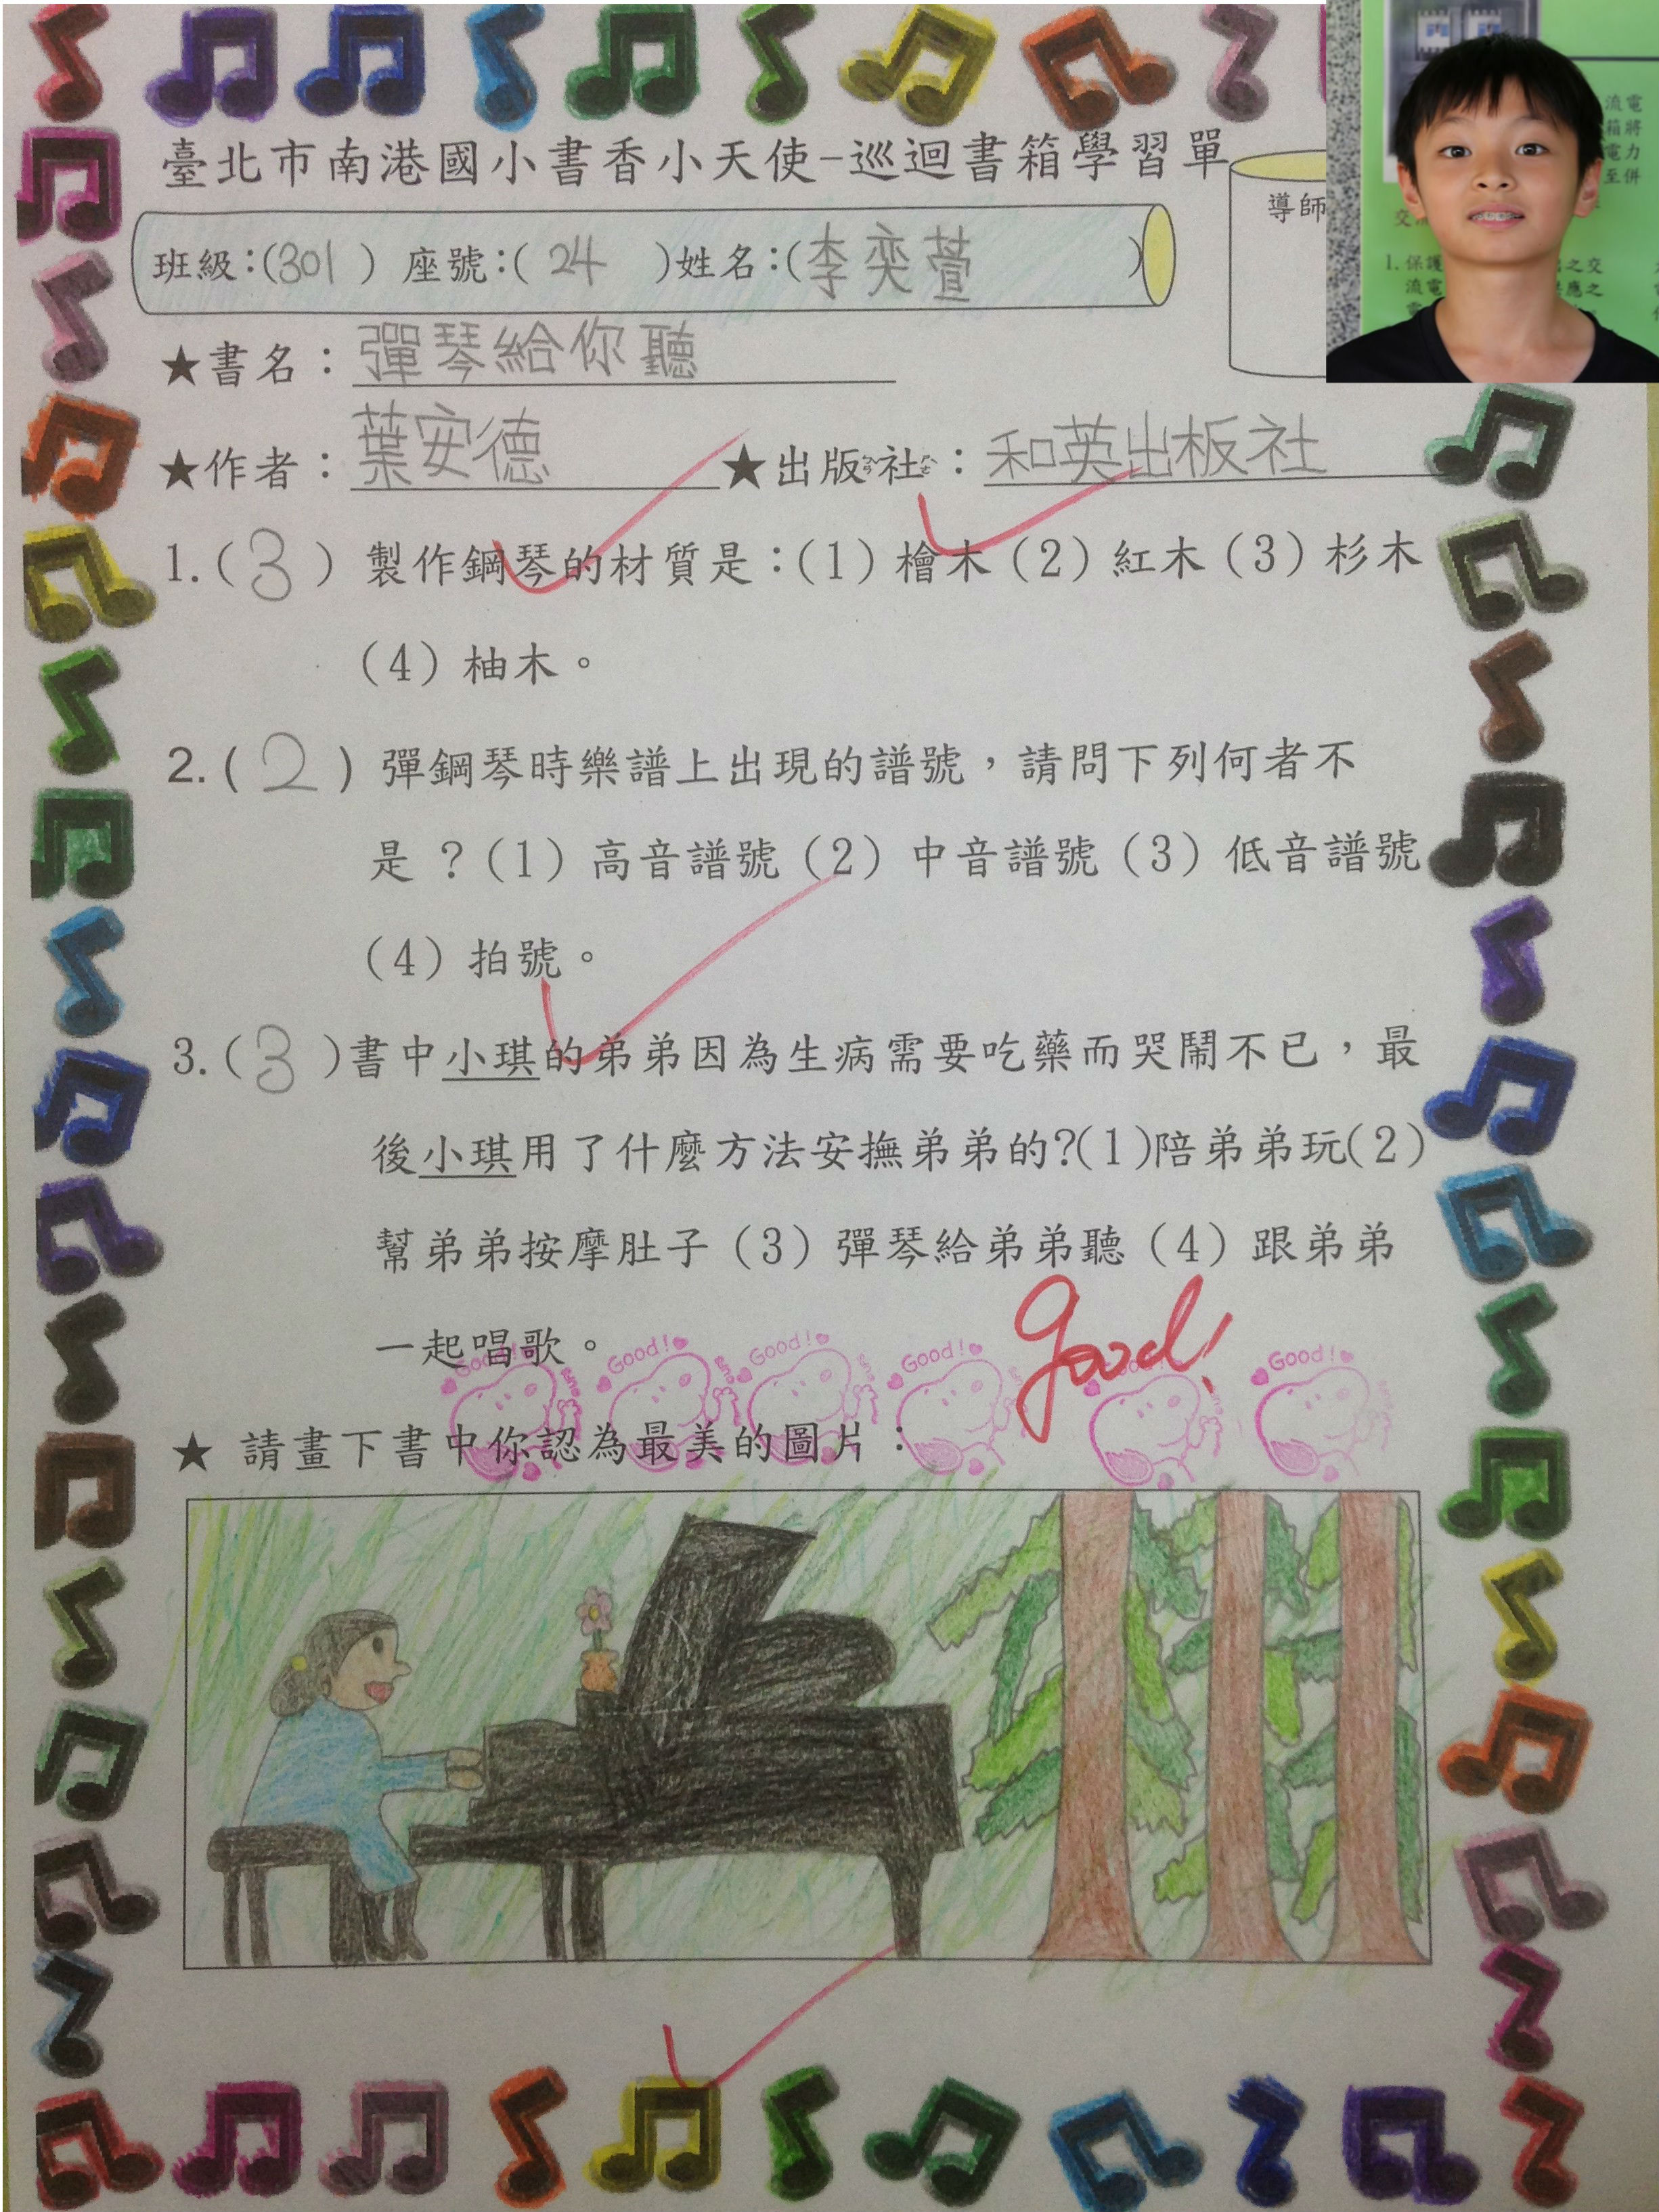 臺北市南港國小書香小天使-巡迴書箱學習單
導師
班級:(301) 座號:(24)姓名:(李奕萱)
★書名:彈琴給你聽
★作者:葉安德 ★出版社:和英出板社
1.(3) 製作鋼琴的材質是:(1)檜木(2)紅木(3)杉木
(4)柚木。
2.(2) 彈鋼琴時樂譜上出現的譜號,請問下列何者不
是?(1)高音譜號(2)中音譜號(3)低音譜號
(4)拍號。
3.(3)書中小琪的弟弟因為生病需要吃藥而哭鬧不已,最
後小琪用了什麼方法安撫弟弟的?(1)陪弟弟玩(2)
幫弟弟按摩肚子(3)彈琴給弟弟聽(4)跟弟弟
一起唱歌。
Good! Good! Good! Good! Good! Good!
Good!
★ 請畫下書中你認為最美的圖片:
流電
箱將
電力
至併
交流
1.保護 之交
流電 應之